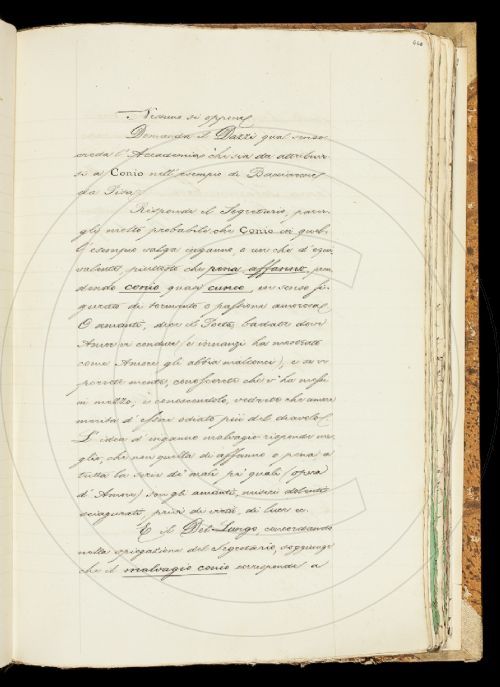 420
Nessuno si oppone.
Domanda il Dazzi qual senso
creda l'Accademia che sia da attribuir-
si a Conio nell'esempio di Bacciarone
da Pisa.
Risponde il Segretario, parer-
gli molto probabile che Conio in quel-
l'esempio valga inganno, o un che d'equi-
valente, piuttosto che pena, affanno, pren-
dendo conio quasi cuneo, in senso fi-
gurato di tormento o passione amorosa.
O amanti, dice il Poeta, badate dove
Amor vi conduce, e innanzi ha mostrato
come Amore gli abbia malconci, e se vi
porrete mente, conoscerete che v'ha messi
in mezzo, e conoscendolo, vedrete che amore
merita d'esser odiato più del diavolo.
L'idea d'inganno malvagio risponde me-
glio, che non quella di affanno o pena a
tutta la serie di mali pe' quali (opera
d'Amore) son gli amanti, miseri dolenti
sciagurati, privi di virtù, di luce ec.
E il Del-Lungo, concordando
nella spiegazione del Segretario, soggiunge
che il malvagio conio corrisponde a